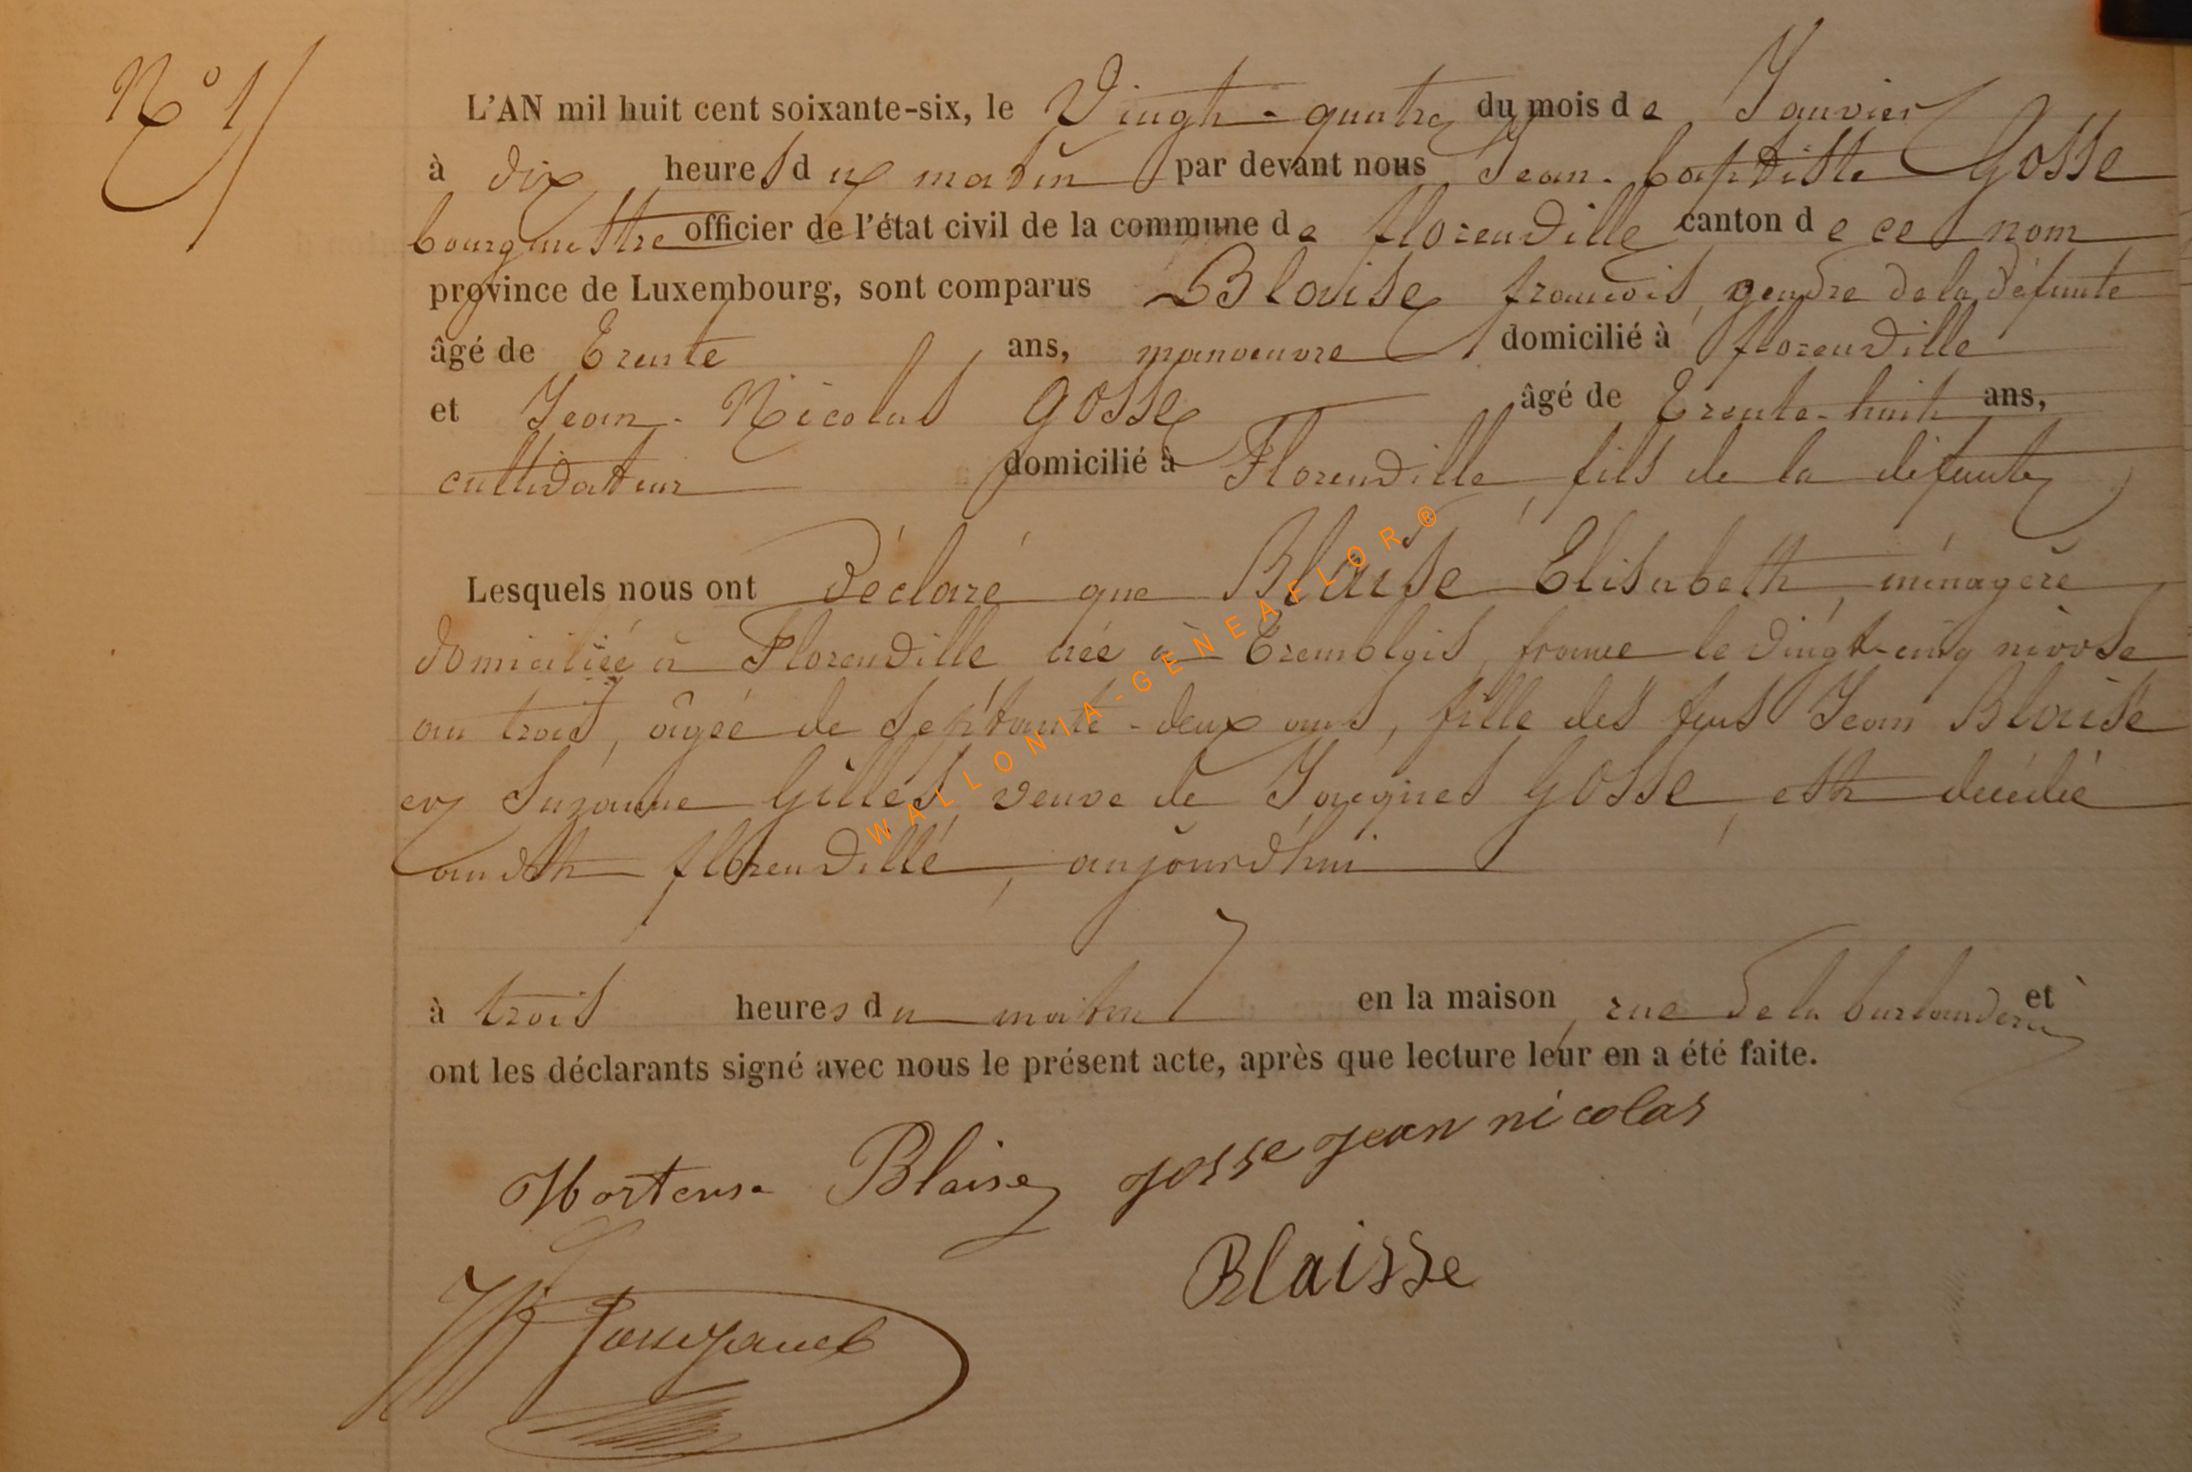 N° 1
L'AN mil huit cent soixante-six, le Vingt-quatre du mois de Janvier
à dix heures du matin par devant nous Jean-baptiste Gosse
bourgmestre officier de l'état civil de la commune de florenville canton de ce nom
province de Luxembourg, sont comparus Blaise francois, gendre de la défunte
âgé de trente ans, manoeuvre domicilié à florenville
et Jean-Nicolas Gosse âgé de trente-huit ans,
cultivateur domicilié à Florenville, fils de la défunte
Lesquels nous ont déclaré que Blaise Elisabeth, ménagère
domiciliée à Florenville née à Tremblois, france le vingt-cinq nivose
an trois, âgée de septante-deux ans, fille des feus Jean Blaise
et Suzanne Gilles, veuve de Jacques Gosse, est décédée
audit florenville, aujourd'hui
à trois heures du matin en la maison, rue de la et
ont les déclarants signé avec nous le présent acte, après que lecture leur en a été faite.
Hortense Blaise gosse jean nicolas
Blaisse
WALLONIA-GENEAFLOR®